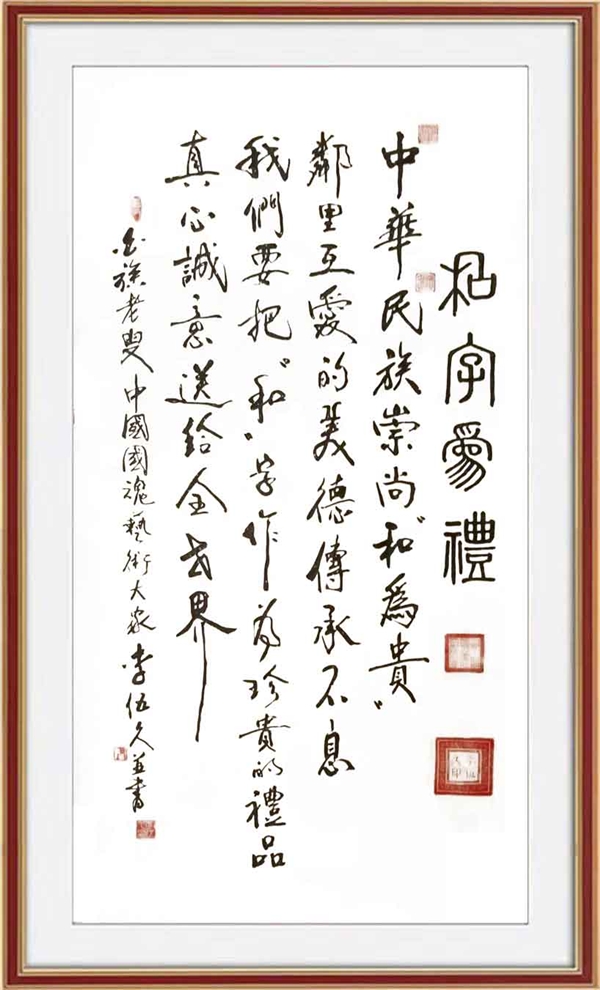 和字為禮
中華民族崇尚"和"爲貴"
鄰里互愛的美德傳承不息
我們要把"和"字作为珍貴的禮品
真心誠意送給全世界
族老叟中國國魂藝術大家李伍久並書